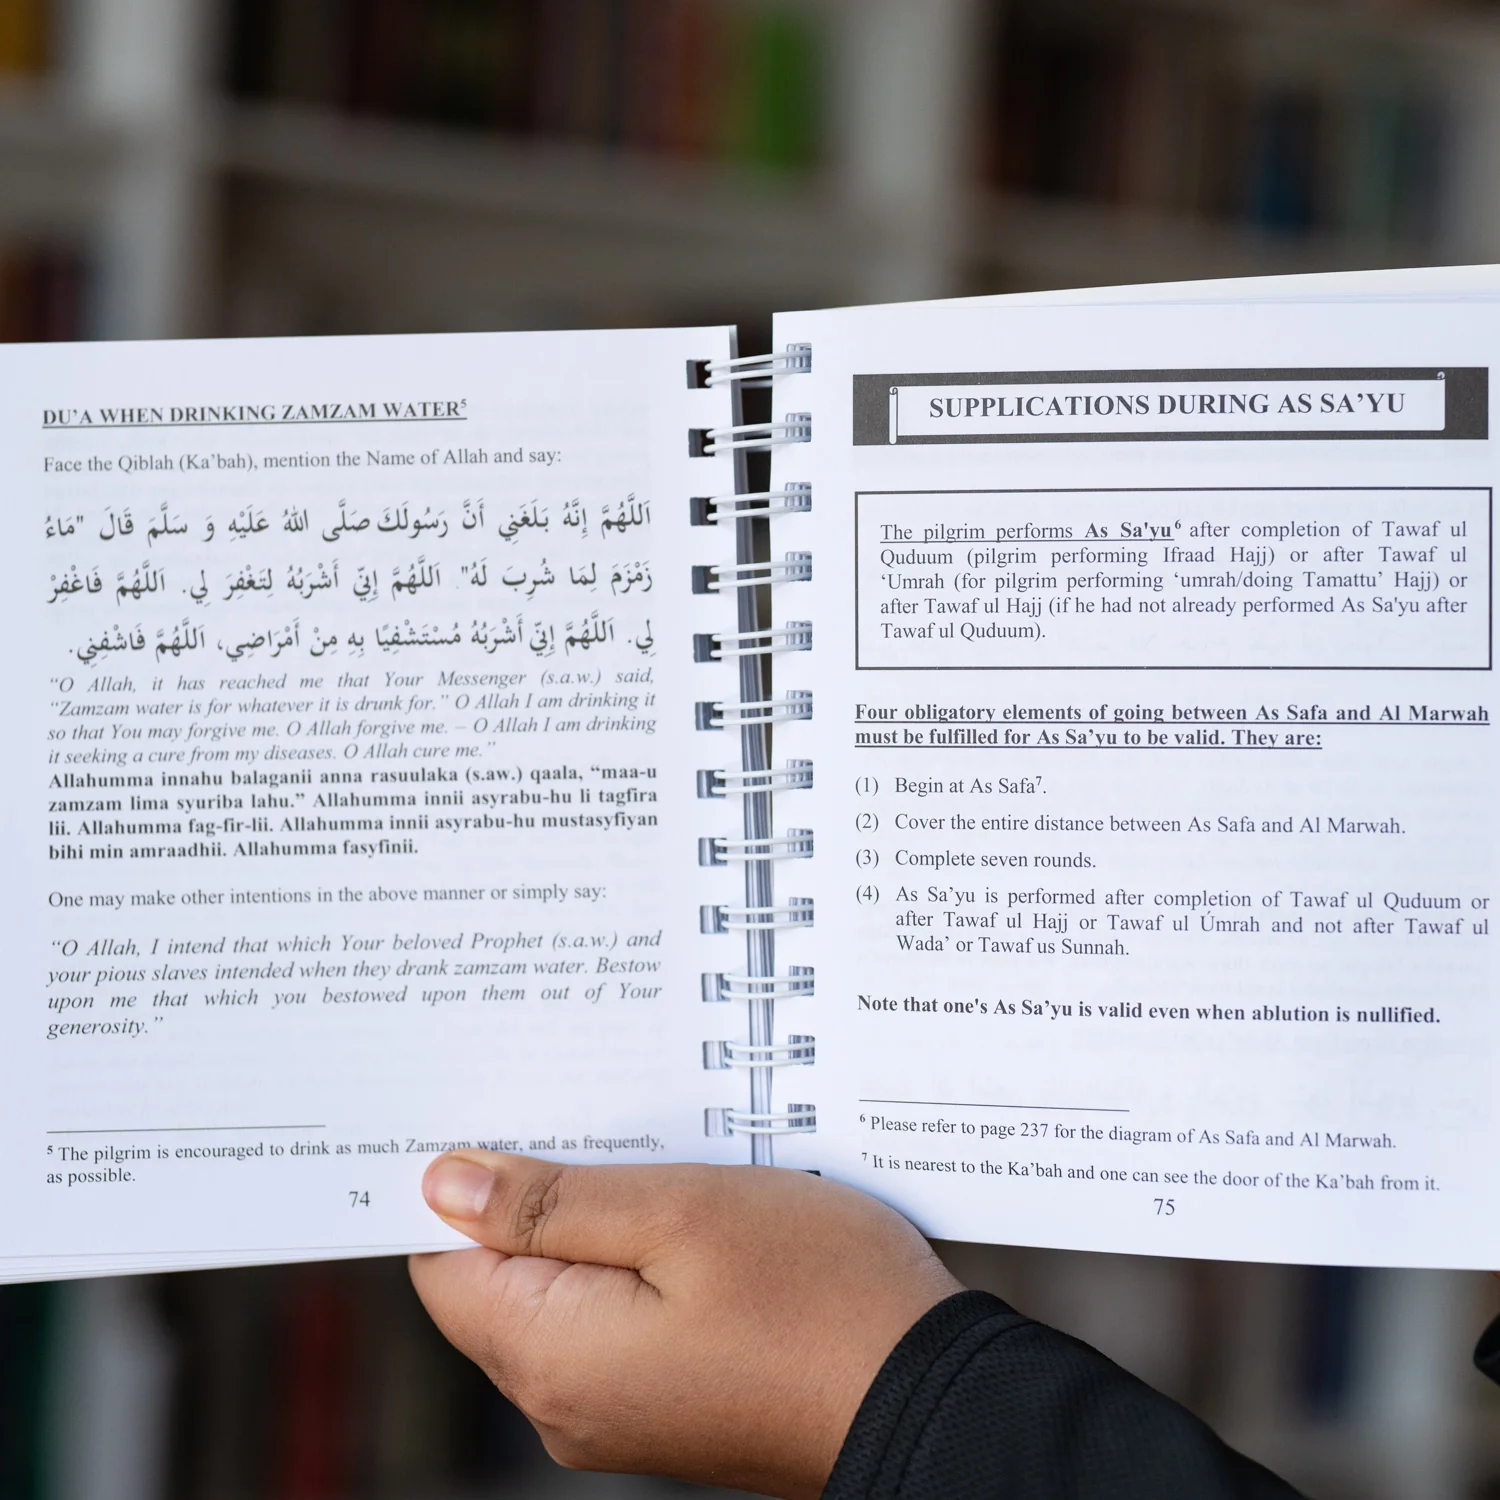 DU'A WHEN DRINKING ZAMZAM WATER⁵
Face the Qiblah (Ka'bah), mention the Name of Allah and say:
اَللَّهُمَّ إِنَّهُ بَلَغَنِي أَنَّ رَسُولَكَ صَلَّى اللهُ عَلَيْهِ وَ سَلَّمَ قَالَ "مَاءُ
زَمْزَمَ لِمَا شُرِبَ لَهُ". اَللَّهُمَّ إِنِّي أَشْرَبُهُ لِتَغْفِرَ لِي. اَللَّهُمَّ فَاغْفِرْ
لِي. اَللَّهُمَّ إِنِّي أَشْرَبُهُ مُسْتَشْفِيًا بِهِ مِنْ أَمْرَاضِي، اَللَّهُمَّ فَاشْفِنِي.
"O Allah, it has reached me that Your Messenger (s.a.w.) said,
"Zamzam water is for whatever it is drunk for." O Allah I am drinking it
so that You may forgive me. O Allah forgive me. – O Allah I am drinking
it seeking a cure from my diseases. O Allah cure me."
Allahumma innahu balaganii anna rasuulaka (s.aw.) qaala, "maa-u
zamzam lima syuriba lahu." Allahumma innii asyrabu-hu li tagfira
lii. Allahumma fag-fir-lii. Allahumma innii asyrabu-hu mustasyfiyan
bihi min amraadhii. Allahumma fasyfinii.
One may make other intentions in the above manner or simply say:
"O Allah, I intend that which Your beloved Prophet (s.a.w.) and
your pious slaves intended when they drank zamzam water. Bestow
upon me that which you bestowed upon them out of Your
generosity."
⁵ The pilgrim is encouraged to drink as much Zamzam water, and as frequently,
as possible.
74
SUPPLICATIONS DURING AS SA'YU
The pilgrim performs As Sa'yu⁶ after completion of Tawaf ul
Quduum (pilgrim performing Ifraad Hajj) or after Tawaf ul
'Umrah (for pilgrim performing 'umrah/doing Tamattu' Hajj) or
after Tawaf ul Hajj (if he had not already performed As Sa'yu after
Tawaf ul Quduum).
Four obligatory elements of going between As Safa and Al Marwah
must be fulfilled for As Sa'yu to be valid. They are:
(1) Begin at As Safa⁷.
(2) Cover the entire distance between As Safa and Al Marwah.
(3) Complete seven rounds.
(4) As Sa'yu is performed after completion of Tawaf ul Quduum or
after Tawaf ul Hajj or Tawaf ul Úmrah and not after Tawaf ul
Wada' or Tawaf us Sunnah.
Note that one's As Sa'yu is valid even when ablution is nullified.
⁶ Please refer to page 237 for the diagram of As Safa and Al Marwah.
⁷ It is nearest to the Ka'bah and one can see the door of the Ka'bah from it.
75